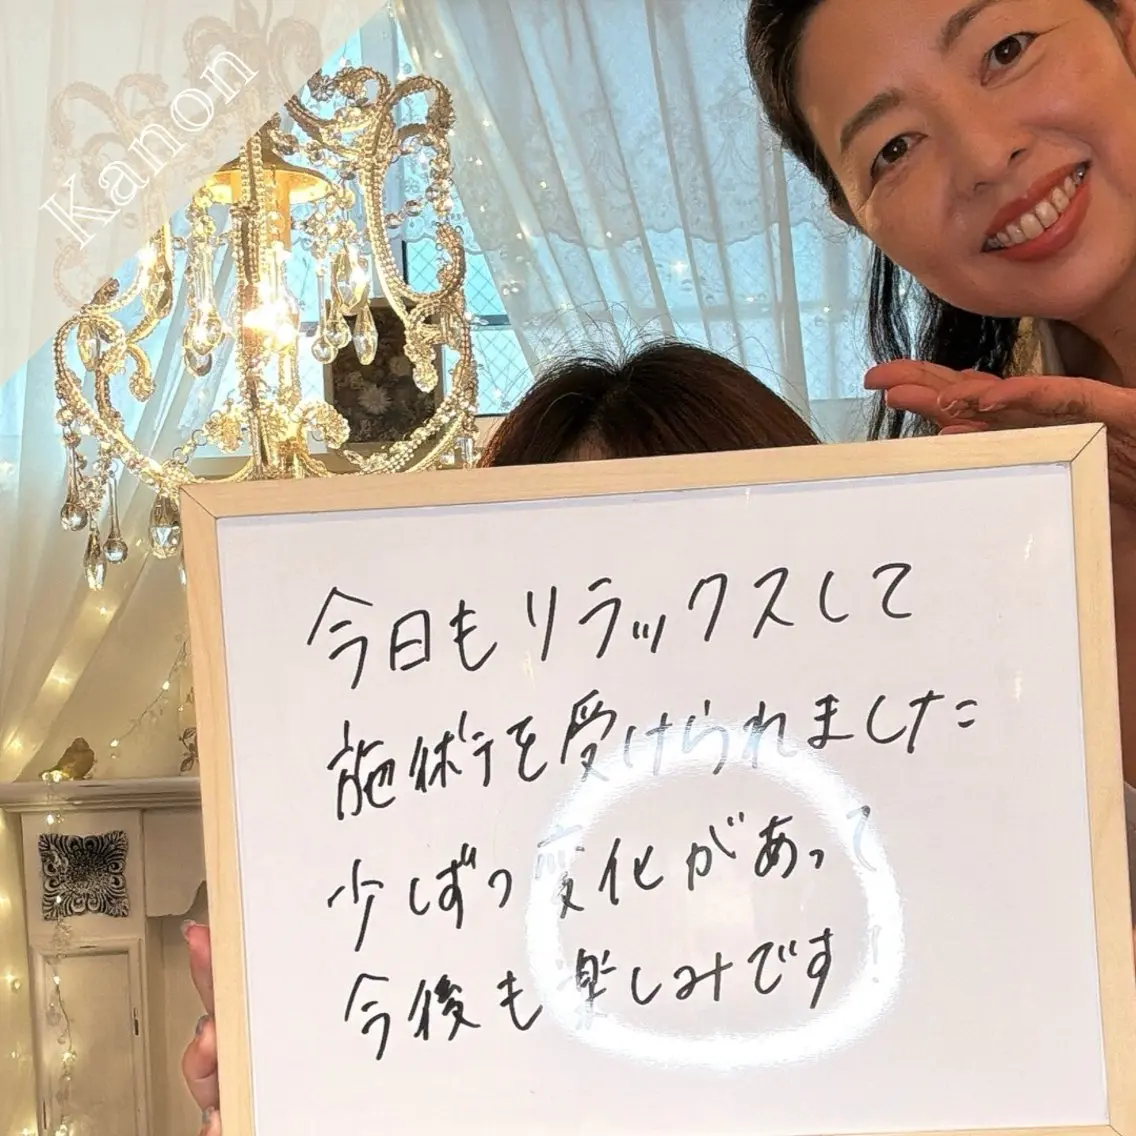 Kanon
今日もリラックスして
施術を受けられました
少しずつ変化があって
今後も楽しみです!